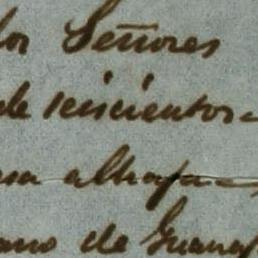 los Señores
de seiscientos
una alhaja
ano de Guana